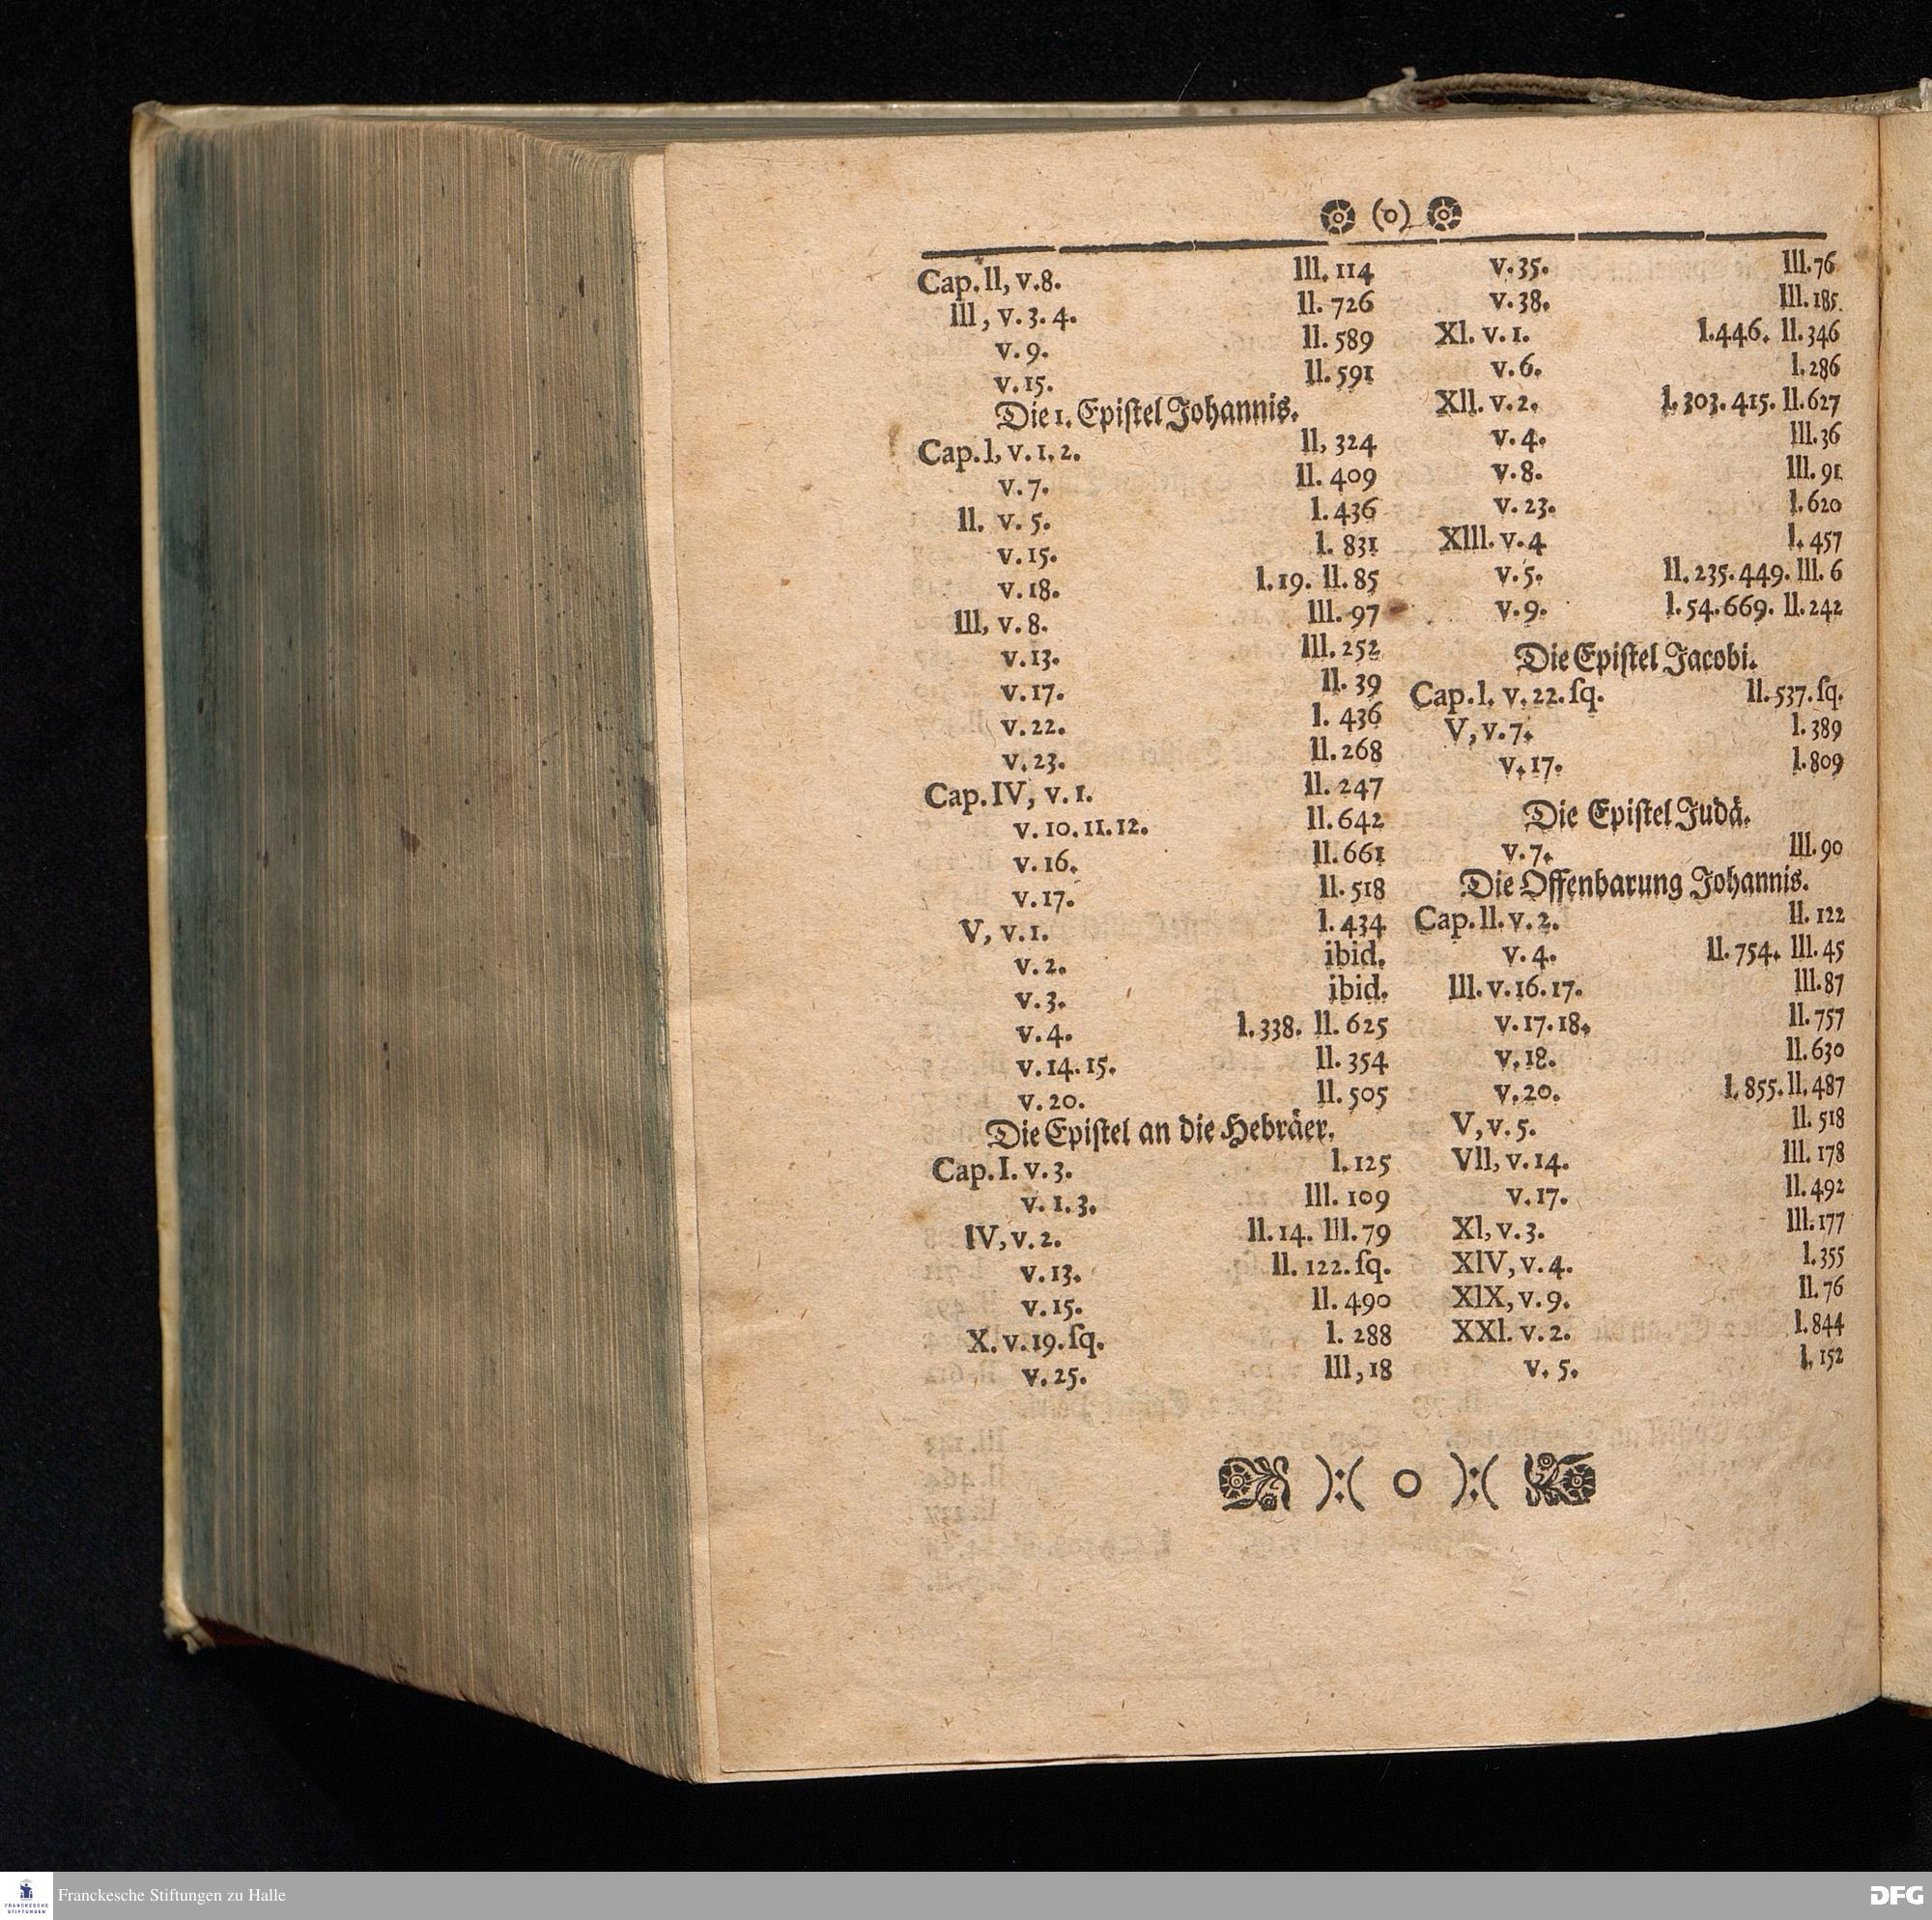 (o)
Cap. II, v. 8. III. 114
III, v. 3. 4. II. 726
v. 9. II. 589
v. 15. II. 591
Die 1. Epiſtel Johannis.
Cap. I, v. 1. 2. II, 324
v. 7. II. 409
II. v. 5. I. 436
v. 15. I. 831
v. 18. I. 19. II. 85
III, v. 8. III. 97
v. 13. III. 252
v. 17. II. 39
v. 22. I. 436
v. 23. II. 268
Cap. IV, v. 1. II. 247
v. 10. 11. 12. II. 642
v. 16. II. 661
v. 17. II. 518
V, v. 1. I. 434
v. 2. ibid.
v. 3. ibid.
v. 4. I. 338. II. 625
v. 14. 15. II. 354
v. 20. II. 505
Die Epiſtel an die Hebräer.
Cap. I. v. 3. I. 125
v. 1. 3. III. 109
IV, v. 2. II. 14. III. 79
v. 13. II. 122. ſq.
v. 15. II. 490
X. v. 19. ſq. I. 288
v. 25. III, 18
v. 35. III. 76
v. 38. III. 185.
XI. v. 1. I. 446. II. 346
v. 6. I. 286
XII. v. 2. I. 303. 415. II. 627
v. 4. III. 36
v. 8. III. 91
v. 23. I. 620
XIII. v. 4 I. 457
v. 5. II. 235. 449. III. 6
v. 9. I. 54. 669. II. 242
Die Epiſtel Jacobi.
Cap. I. v. 22. ſq. II. 537. ſq.
V, v. 7. I. 389
v. 17. I. 809
Die Epiſtel Judä.
v. 7. III. 90
Die Offenbarung Johannis.
Cap. II. v. 2. II. 122
v. 4. II. 754. III. 45
III. v. 16. 17. III. 87
v. 17. 18. II. 757
v. 18. II. 630
v. 20. I. 855. II. 487
V, v. 5. II. 518
VII, v. 14. III. 178
v. 17. II. 492
XI, v. 3. III. 177
XIV, v. 4. I. 355
XIX, v. 9. II. 76
XXI. v. 2. I. 844
v. 5. I. 152
):( o ):(
FRANCKESCHE STIFTUNGEN
Franckesche Stiftungen zu Halle
DFG